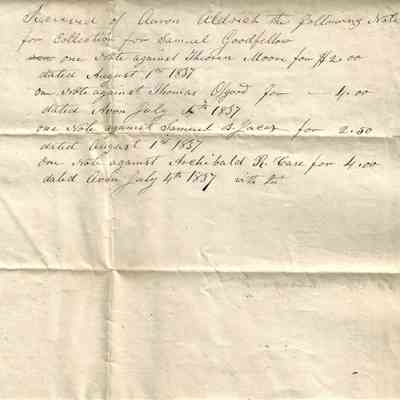 Received of Aaron Aldrich the following Note
for Collection for Samuel Goodfellow
one Note against Theoran Moore for $2.00
dated August 1st 1837
one Note against Thomas Osgood for — 4.00
dated Avon July 4th 1837
one Note against Samuel S for 2.50
dated August 1st 1837
One Note against Archibald R. Case for 4.00
dated Avon July 4th 1837 with